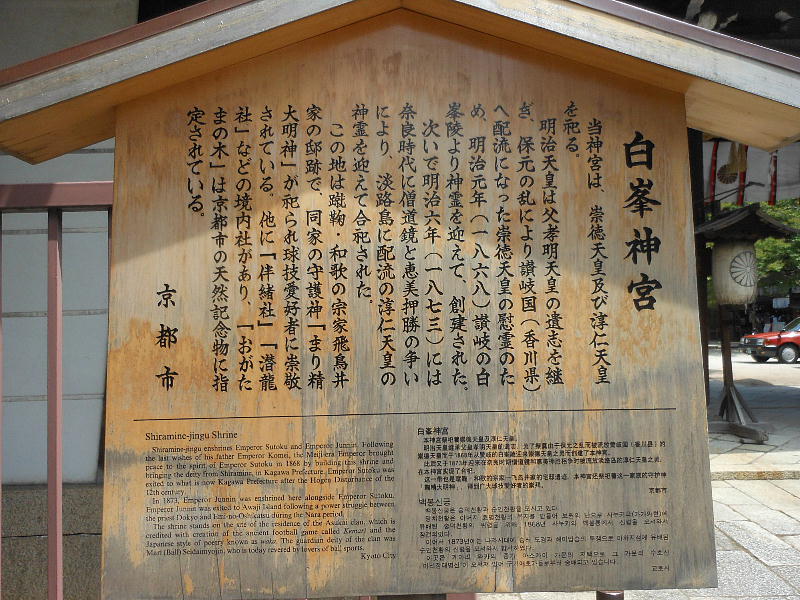 白峯神宮
当神宮は、崇徳天皇及び淳仁天皇
を祀る。
明治天皇は父孝明天皇の遺志を継
ぎ、保元の乱により讃岐国（香川県）
へ配流になった崇徳天皇の慰霊のた
め、明治元年（一八六八）讃岐の白
峯陵より神霊を迎えて、創建された。
次いで明治六年（一八七三）には
奈良時代に僧道鏡と恵美押勝の争い
により、淡路島に配流の淳仁天皇の
神霊を迎えて合祀された。
この地は蹴鞠・和歌の宗家飛鳥井
家の邸跡で、同家の守護神「まり精
大明神」が祀られ球技愛好者に崇敬
されている。他に「伴緒社」「潜龍
社」などの境内社があり、「おがた
まの木」は京都市の天然記念物に指
定されている。
京都市
Shiramine-jingu Shrine
Shiramine-jingu enshrines Emperor Sutoku and Emperor Junnin. Following
the last wishes of his father Emperor Komei, the Meiji-era Emperor brought
peace to the spirit of Emperor Sutoku in 1868 by building this shrine and
bringing the deity from Shiramine, in Kagawa Prefecture. Emperor Sutoku was
exiled to what is now Kagawa Prefecture after the Hogen Disturbance of the
12th century.
In 1873, Emperor Junnin was enshrined here alongside Emperor Sutoku.
Emperor Junnin was exiled to Awaji Island following a power struggle between
the priest Dokyo and Emi-no-Oshikatsu during the Nara period.
The shrine stands on the site of the residence of the Asukai clan, which is
credited with creation of the ancient football game called Kemari and the
Japanese style of poetry known as waka. The guardian deity of the clan was
Mari (Ball) Seidaimyojin, who is today revered by lovers of ball sports.
Kyoto City
白峰神宫
本神宫祭祀着崇德天皇及淳仁天皇。
京都市
백봉신궁
교토시